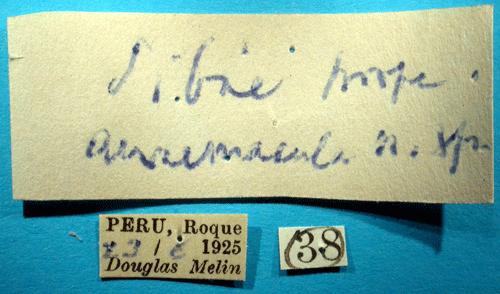 Sibine prope.
aureomacula n. sp.
PERU, Roque
23/6 1925
Douglas Melin
38